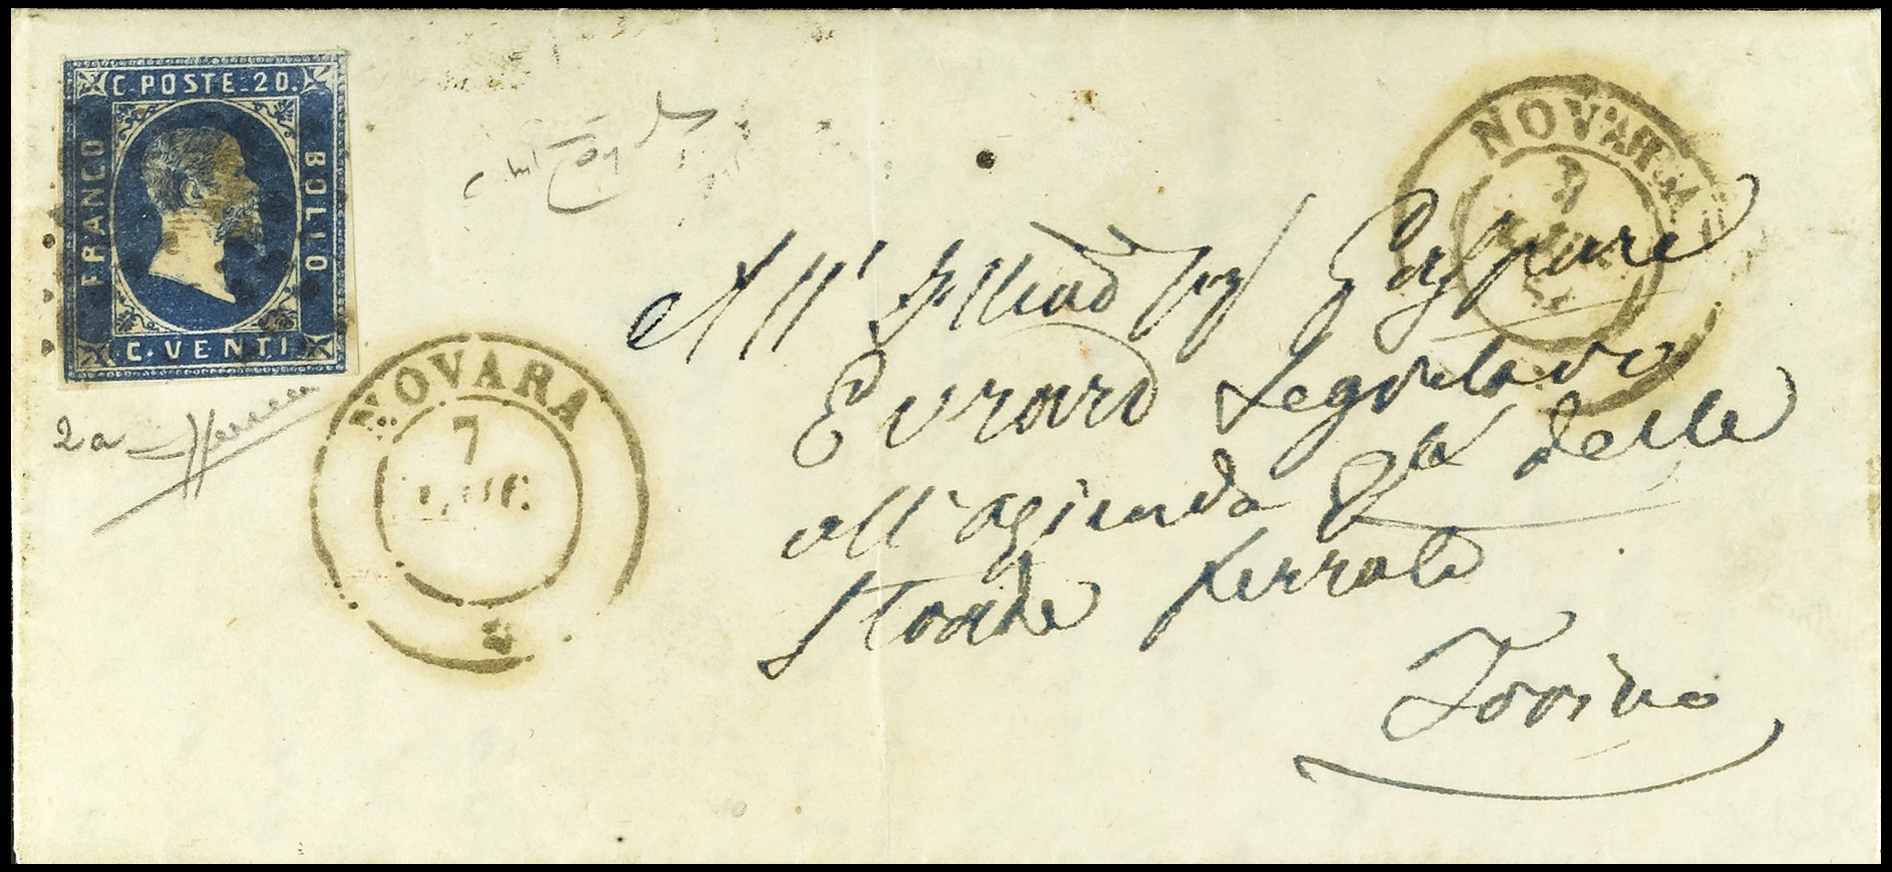 C. POSTE. 20.
FRANCO
BOLLO
C. VENTI.
NOVARA
7
NOVARA
7
LUG.
2a
All' Gaspare
Evrard Segretario
all'azienda Gle delle
Strade ferrate
Torino